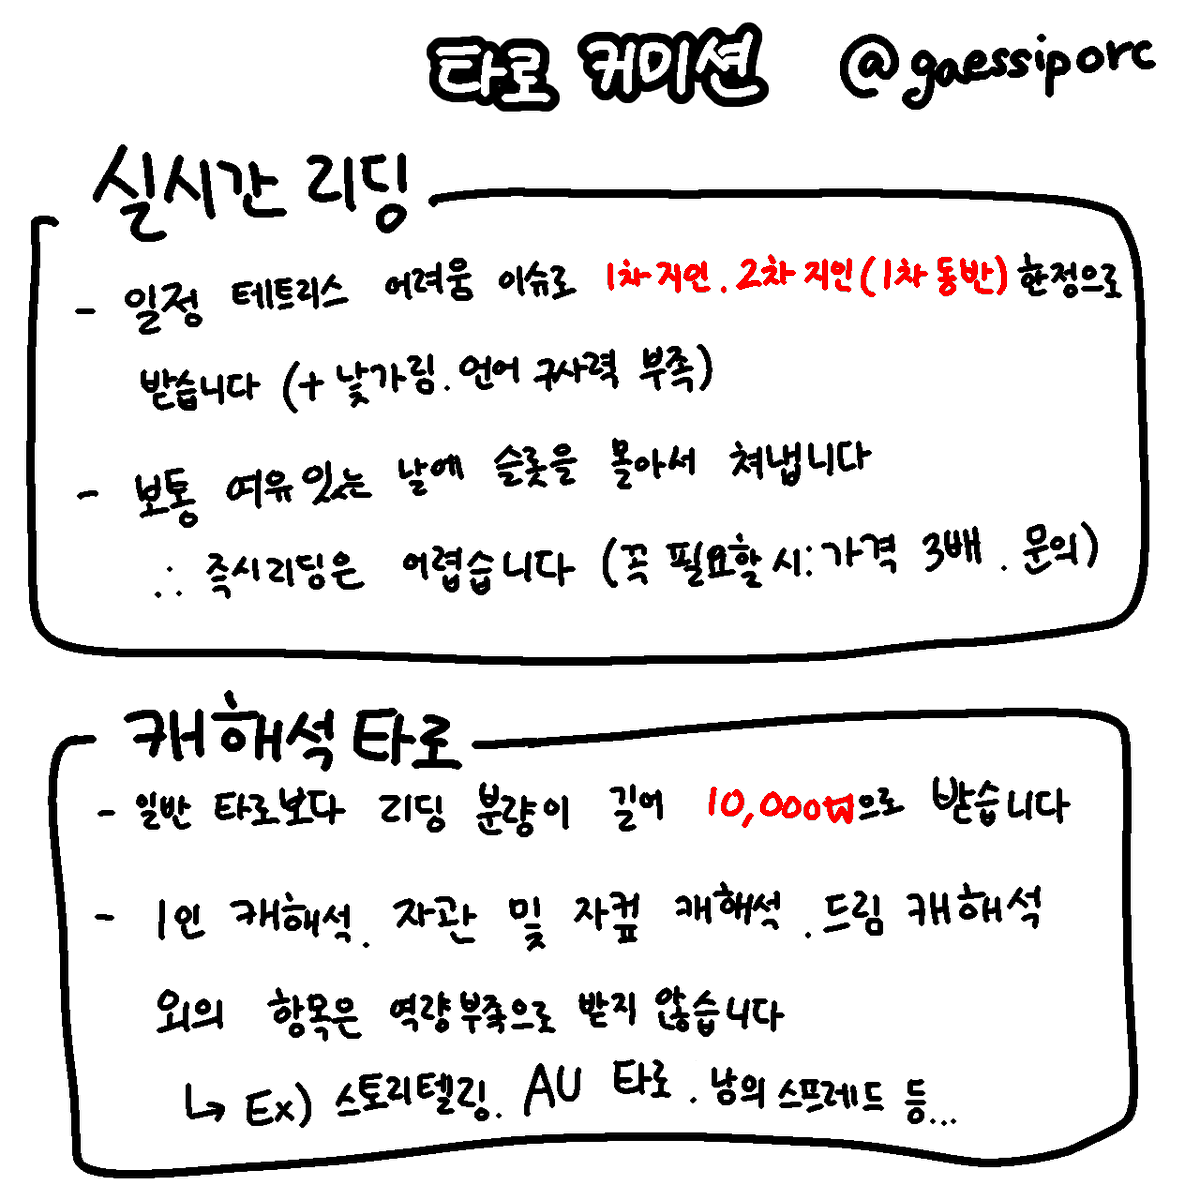 타로 커미션 @gaessiporc
실시간 리딩
- 일정 테트리스 어려움 이슈로 1차지인.2차지인(1차동반)한정으로
받습니다 (+낯가림.언어 구사력 부족)
- 보통 여유있는 날에 슬롯을 몰아서 쳐냅니다
∴ 즉시리딩은 어렵습니다 (꼭 필요할시:가격 3배.문의)
캐해석 타로
- 일반 타로보다 리딩 분량이 길어 10,000₩으로 받습니다
- 1인 캐해석.자관 및 자컾 캐해석.드림 캐해석
외의 항목은 역량부족으로 받지 않습니다
↳ Ex) 스토리텔링.AU 타로.남의 스프레드 등...